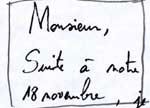 Monsieur,
Suite à notre
18 novembre, je